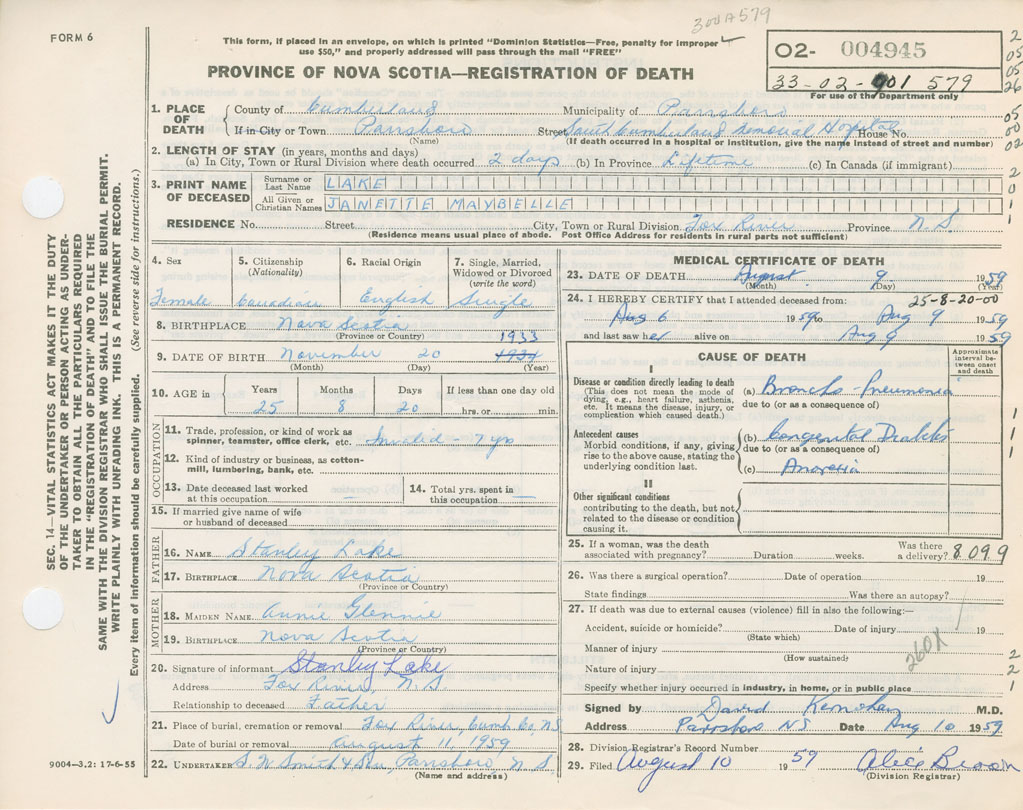 300A579
FORM 6
This form, if placed in an envelope, on which is printed "Dominion Statistics—Free, penalty for improper
use $50," and properly addressed will pass through the mail "FREE"
PROVINCE OF NOVA SCOTIA—REGISTRATION OF DEATH
O2- 004945
33-02-901 579
For use of the Department only
2
05
05
26
05
00
02
2
0
1
1
SEC. 14—VITAL STATISTICS ACT MAKES IT THE DUTY
OF THE UNDERTAKER OR PERSON ACTING AS UNDER-
TAKER TO OBTAIN ALL THE PARTICULARS REQUIRED
IN THE "REGISTRATION OF DEATH" AND TO FILE THE
SAME WITH THE DIVISION REGISTRAR WHO SHALL ISSUE THE BURIAL PERMIT.
WRITE PLAINLY WITH UNFADING INK. THIS IS A PERMANENT RECORD.
Every item of information should be carefully supplied. (See reverse side for instructions.)
1. PLACE OF DEATH
County of Cumberland Municipality of Parrsboro
If in City or Town Parrsboro Street South Cumberland Memorial Hospital House No.
(Name) (If death occurred in a hospital or institution, give the name instead of street and number)
2. LENGTH OF STAY (in years, months and days)
(a) In City, Town or Rural Division where death occurred 2 days (b) In Province Lifetime (c) In Canada (if immigrant)
3. PRINT NAME OF DECEASED
Surname or Last Name LAKE
All Given or Christian Names JANETTE MAYBELLE
RESIDENCE No. Street City, Town or Rural Division Fox River Province N.S.
(Residence means usual place of abode. Post Office Address for residents in rural parts not sufficient)
4. Sex
Female
5. Citizenship
(Nationality)
Canadian
6. Racial Origin
English
7. Single, Married,
Widowed or Divorced
(write the word)
Single
8. BIRTHPLACE Nova Scotia
(Province or Country)
1933
9. DATE OF BIRTH November 20 1934
(Month) (Day) (Year)
10. AGE in
Years Months Days If less than one day old
25 8 20 hrs. or min.
OCCUPATION
11. Trade, profession, or kind of work as
spinner, teamster, office clerk, etc. Invalid - 7 yrs
12. Kind of industry or business, as cotton-
mill, lumbering, bank, etc.
13. Date deceased last worked
at this occupation
14. Total yrs. spent in
this occupation —
15. If married give name of wife
or husband of deceased
FATHER
16. NAME Stanley Lake
17. BIRTHPLACE Nova Scotia
(Province or Country)
MOTHER
18. MAIDEN NAME Annie Glennie
19. BIRTHPLACE Nova Scotia
(Province or Country)
20. Signature of informant Stanley Lake
Address Fox River, N.S
Relationship to deceased Father
21. Place of burial, cremation or removal Fox River, Cumb. Co, NS
Date of burial or removal August 11, 1959
22. UNDERTAKER S W Smith & Son, Parrsboro, N.S
(Name and address)
9004—3.2: 17-6-55
MEDICAL CERTIFICATE OF DEATH
23. DATE OF DEATH August 9 1959
(Month) (Day) (Year)
25-8-20-00
24. I HEREBY CERTIFY that I attended deceased from:
Aug 6 1959 to Aug 9 1959
and last saw her alive on Aug 9 1959
CAUSE OF DEATH
Approximate
interval be-
tween onset
and death
I
Disease or condition directly leading to death
(This does not mean the mode of
dying, e.g., heart failure, asthenia,
etc. It means the disease, injury, or
complication which caused death.)
(a) Broncho-Pneumonia
due to (or as a consequence of)
Antecedent causes
Morbid conditions, if any, giving
rise to the above cause, stating the
underlying condition last.
(b) Congenital Diabetes
due to (or as a consequence of)
(c) Anorexia
1
1
1
II
Other significant conditions
contributing to the death, but not
related to the disease or condition
causing it.
25. If a woman, was the death
associated with pregnancy? Duration weeks. Was there
a delivery? 8099
26. Was there a surgical operation? Date of operation 19
State findings Was there an autopsy?
27. If death was due to external causes (violence) fill in also the following:—
Accident, suicide or homicide? Date of injury 19
(State which)
Manner of injury
(How sustained)
Nature of injury
260X
2
2
1
Specify whether injury occurred in industry, in home, or in public place
Signed by David M.D.
Address Parrsboro NS Date Aug 10 1959
28. Division Registrar's Record Number
29. Filed August 10 1959 Alice
(Division Registrar)